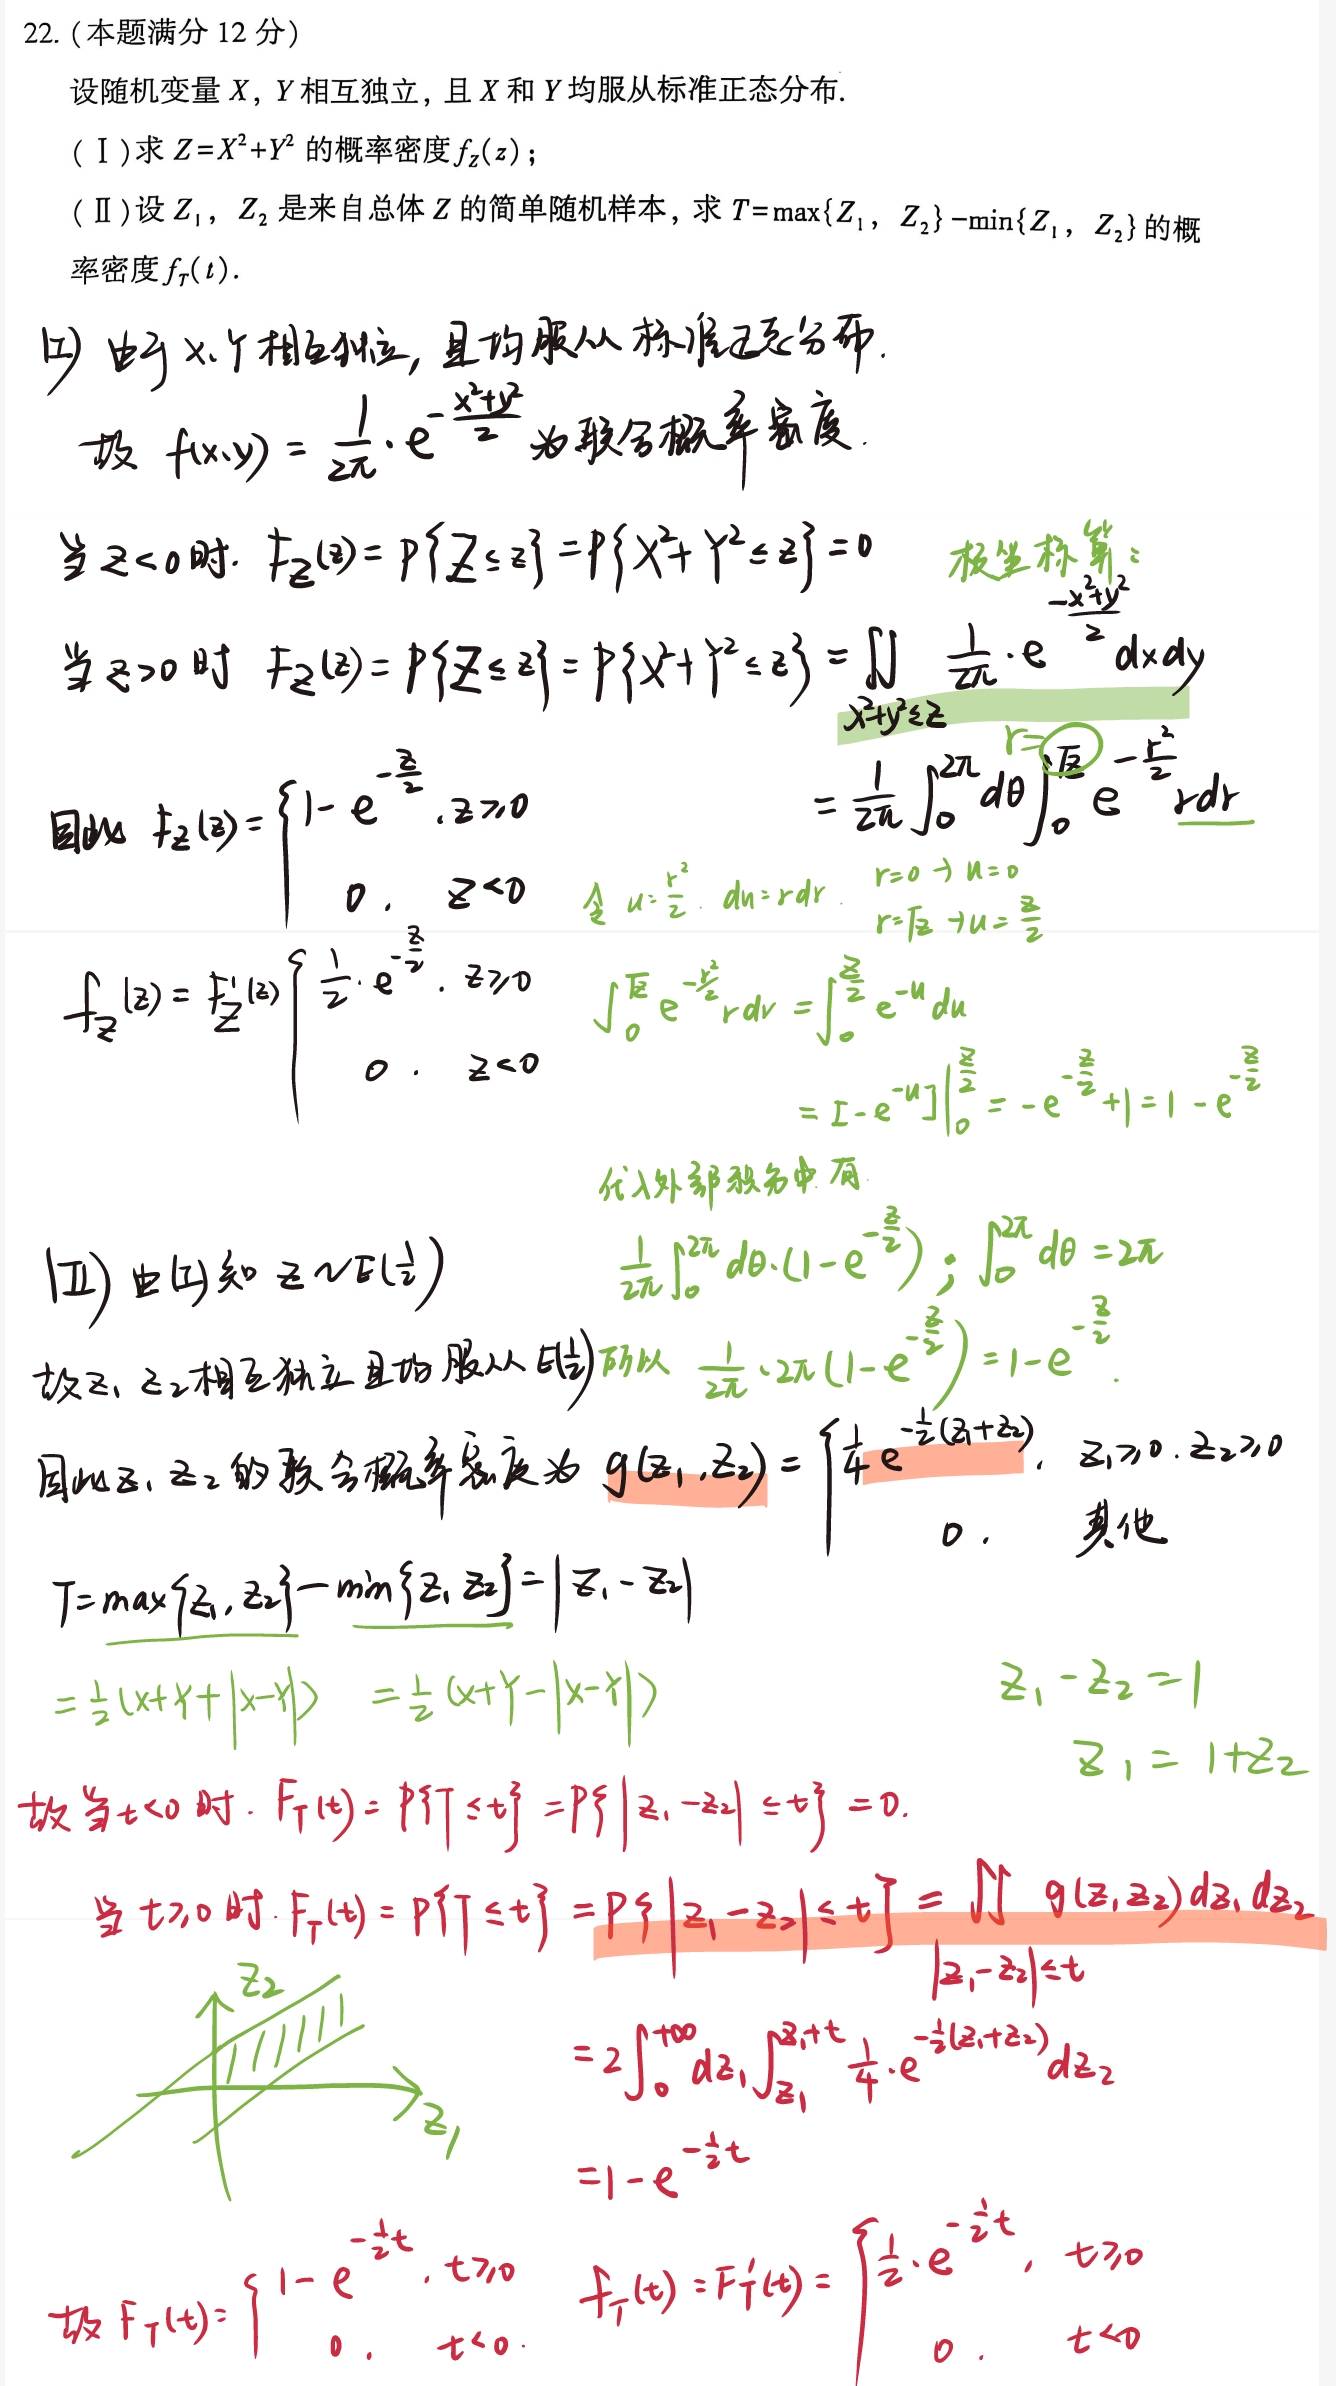 22. (本题满分 12 分)
设随机变量 X, Y 相互独立, 且 X 和 Y 均服从标准正态分布.
(Ⅰ)求 Z=X²+Y² 的概率密度 f_Z(z);
(Ⅱ)设 Z₁, Z₂ 是来自总体 Z 的简单随机样本, 求 T=max{Z₁, Z₂}-min{Z₁, Z₂}的概
率密度 f_T(t).
(Ⅰ) 由于 X、Y 相互独立, 且均服从标准正态分布.
故 f(x,y) = 1/2π · e^(-(x²+y²)/2) 为联合概率密度.
当 z<0 时. F_Z(z) = P{Z≤z} = P{X²+Y²≤z} = 0
极坐标算:
当 z>0 时 F_Z(z) = P{Z≤z} = P{X²+Y²≤z} = ∬_(x²+y²≤z) 1/2π · e^(-(x²+y²)/2) dxdy
r=
= 1/2π ∫₀^2π dθ ∫₀^√z e^(-r²/2) rdr
因此 F_Z(z) = { 1-e^(-z/2) , z≥0
0 . z<0
令 u=r²/2 . du=rdr .
r=0 → u=0
r=√z → u=z/2
f_Z(z) = F'_Z(z) { 1/2 · e^(-z/2) . z≥0
0 . z<0
∫₀^√z e^(-r²/2) rdr = ∫₀^(z/2) e^(-u) du
= [-e^(-u)]|₀^(z/2) = -e^(-z/2) +1 = 1-e^(-z/2)
代入外部积分中.有
1/2π ∫₀^2π dθ·(1-e^(-z/2)) ; ∫₀^2π dθ = 2π
所以 1/2π · 2π (1-e^(-z/2)) = 1-e^(-z/2) .
(Ⅱ) 由(Ⅰ)知 Z~E(1/2)
故 Z₁ Z₂ 相互独立且均服从 E(1/2)
因此 Z₁ Z₂ 的联合概率密度为 g(z₁,z₂) = { 1/4 e^(-1/2(z₁+z₂)) . z₁≥0 . z₂≥0
0 . 其他
T=max{Z₁,Z₂}-min{Z₁ Z₂} = |Z₁-Z₂|
= 1/2 (X+Y+|X-Y|) = 1/2 (X+Y-|X-Y|)
Z₁-Z₂=1
Z₁=1+Z₂
故当 t<0 时. F_T(t) = P{T≤t} = P{|Z₁-Z₂|≤t} = 0.
当 t≥0 时. F_T(t) = P{T≤t} = P{|Z₁-Z₂|≤t} = ∬_(|z₁-z₂|≤t) g(z₁,z₂)dz₁dz₂
Z₂
Z₁
= 2∫₀^(+∞) dz₁ ∫_(z₁)^(z₁+t) 1/4 · e^(-1/2(z₁+z₂)) dz₂
= 1-e^(-1/2 t)
故 F_T(t) = { 1-e^(-1/2 t) , t≥0
0 . t<0 .
f_T(t) = F'_T(t) = { 1/2 · e^(-1/2 t) , t≥0
0 . t<0